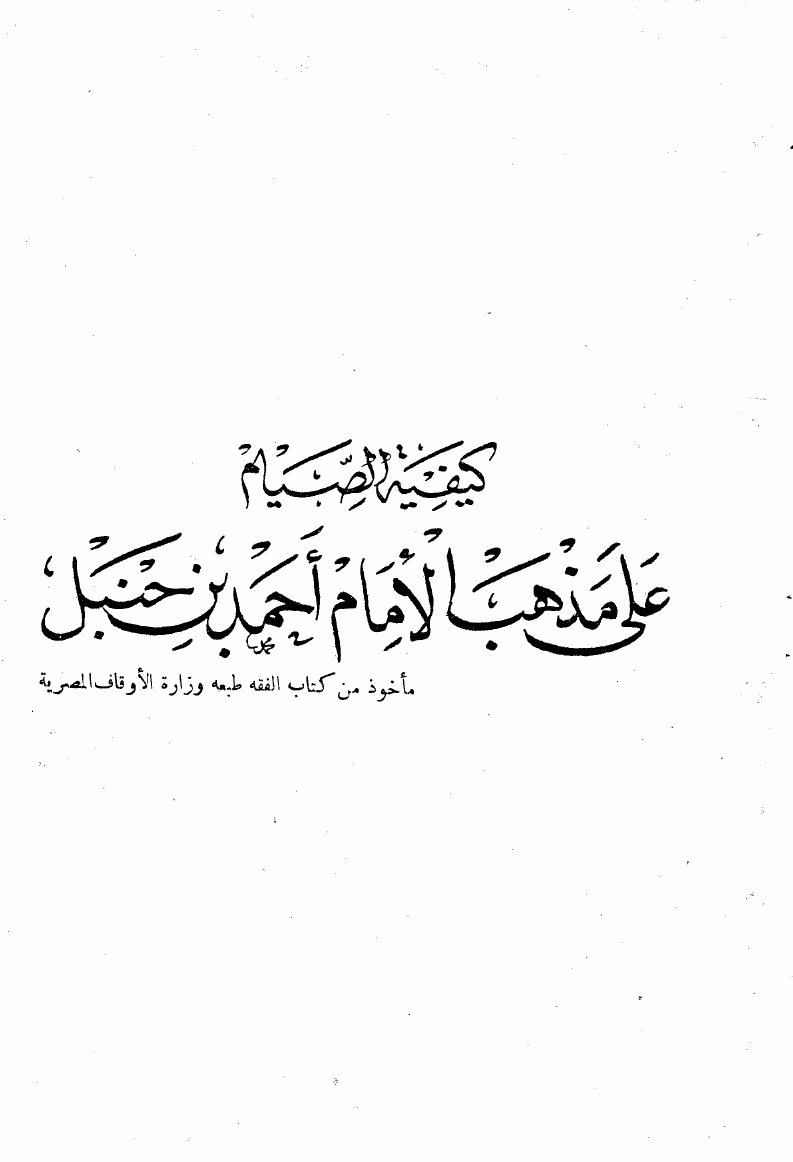 كيفية الصِّيام
عَلَى مَذهب الإمَام أحمد بن حنبل
مأخوذ من كتاب الفقه طبعه وزارة الأوقاف المصرية